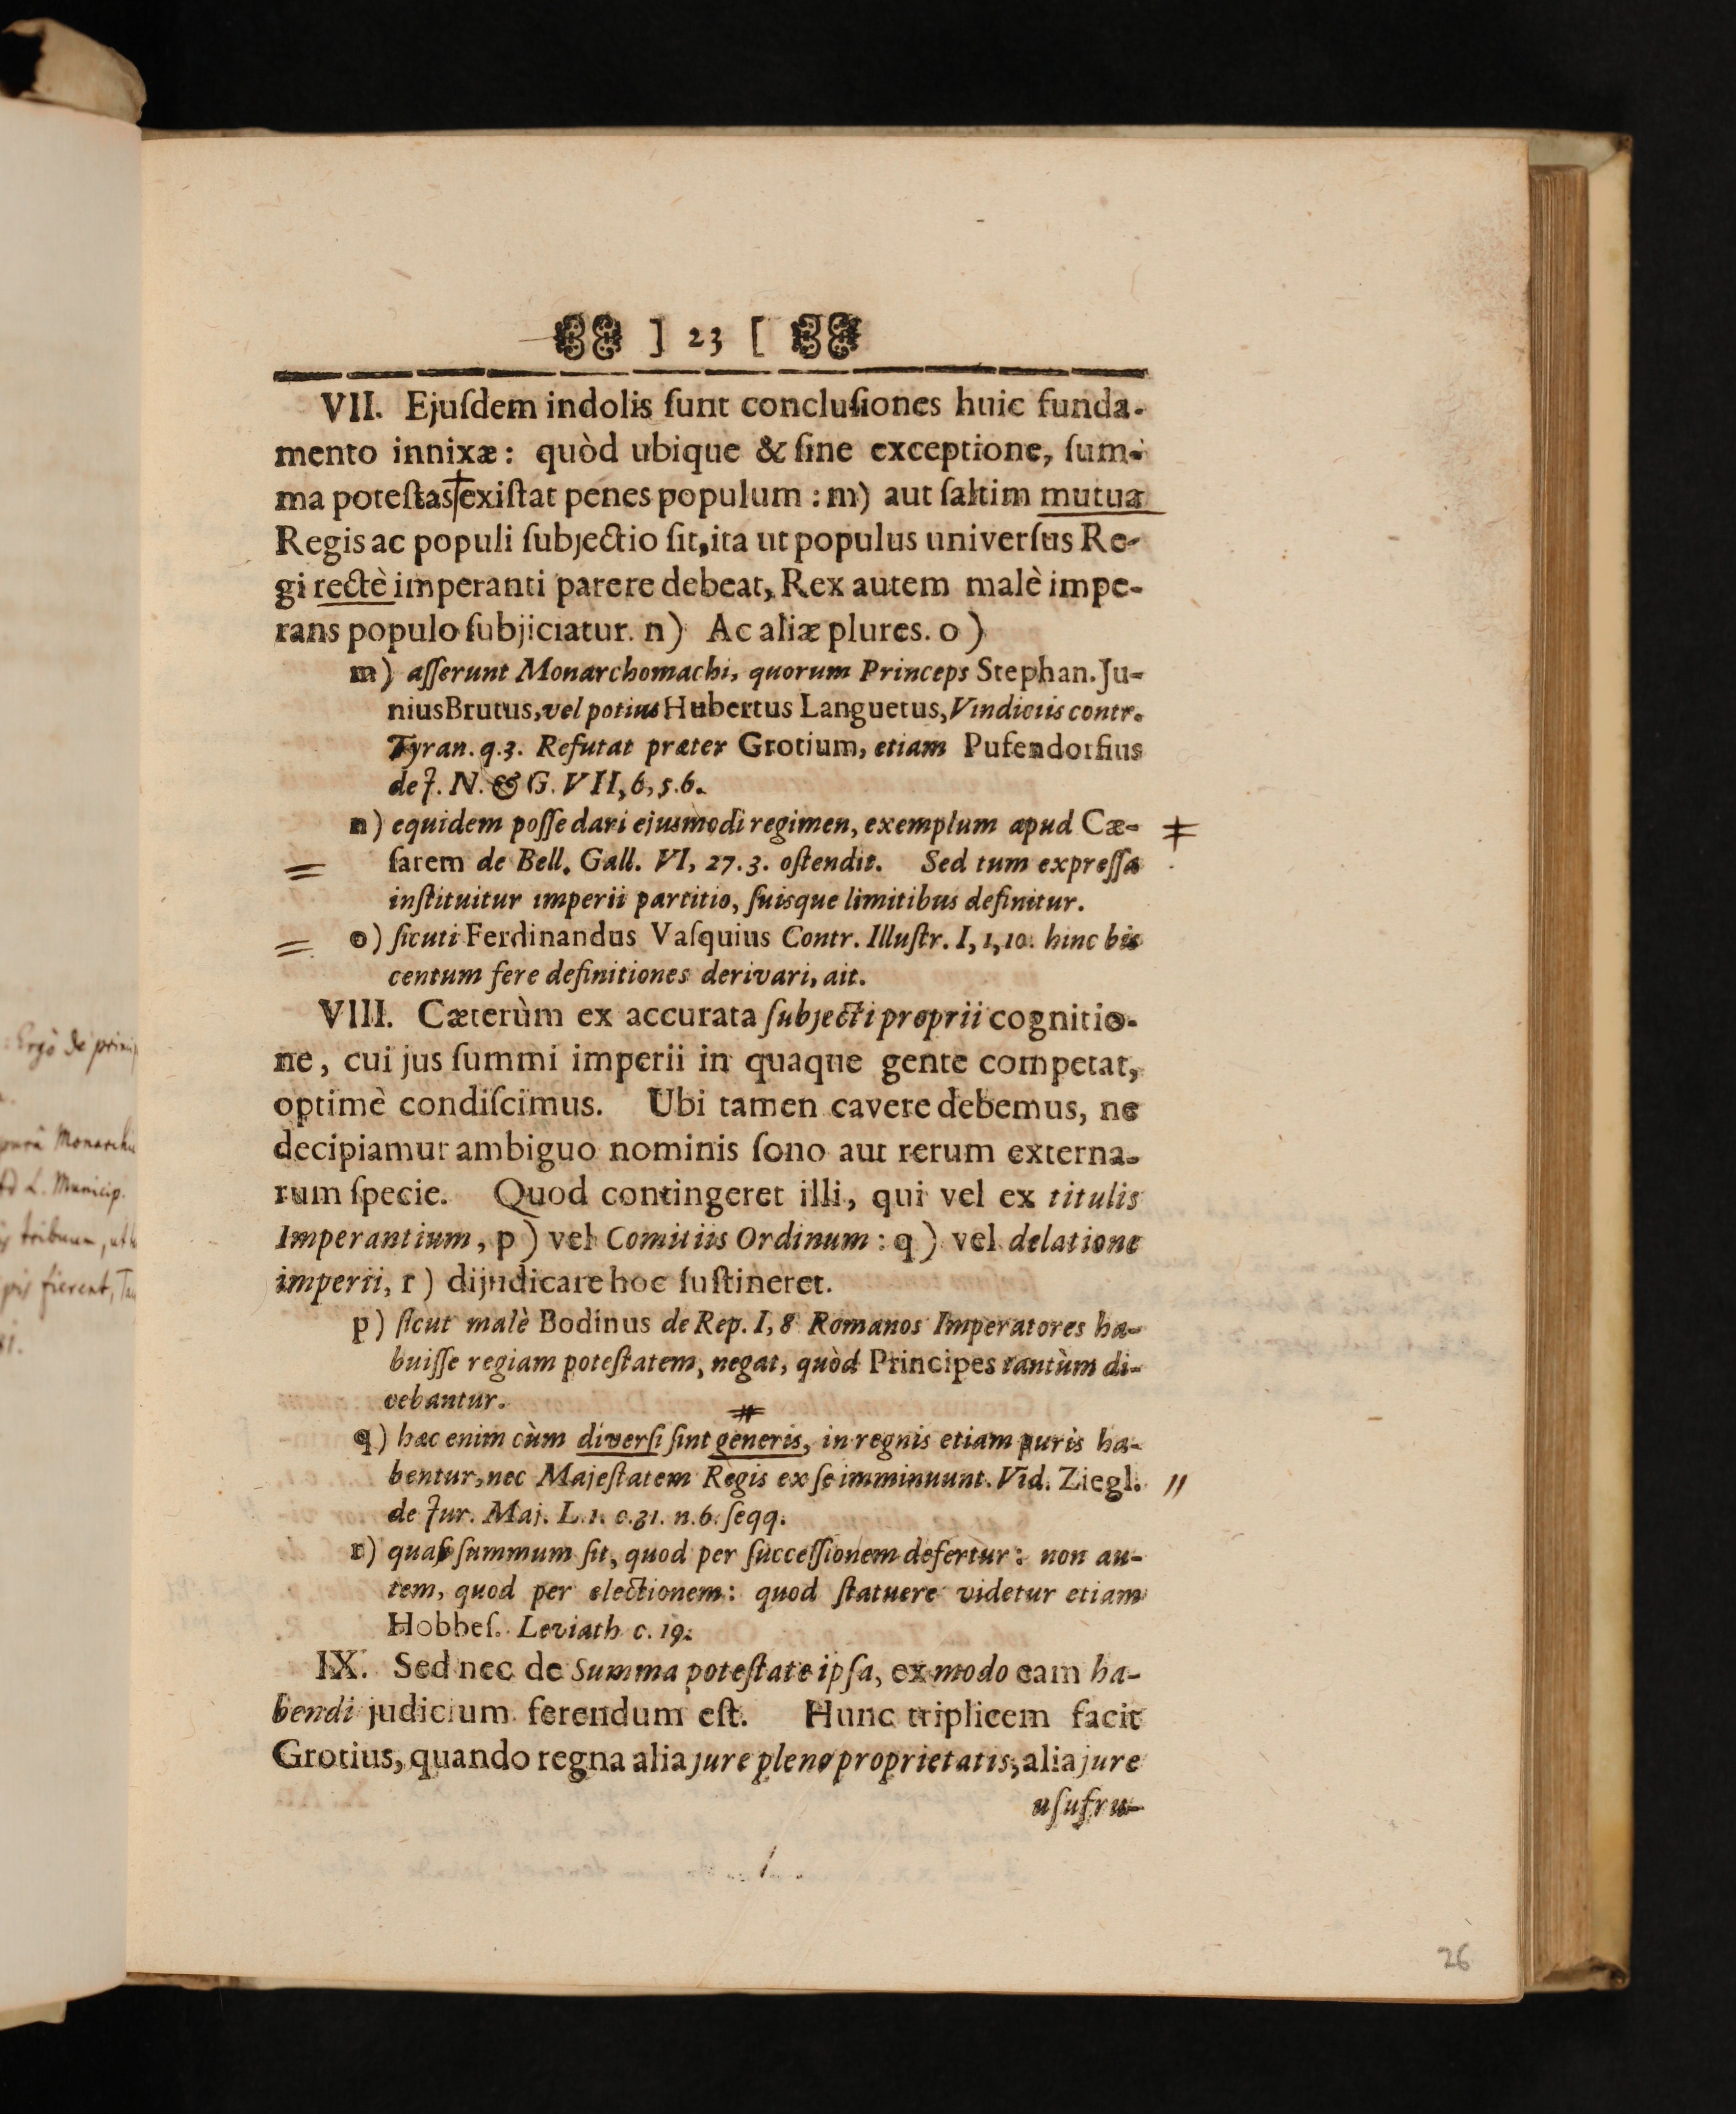 ] 23 [
VII. Ejuſdem indolis ſunt concluſiones huic funda-
mento innixæ: quòd ubique & ſine exceptione, ſum-
ma poteſtas exiſtat penes populum : m) aut ſaltim mutua
Regis ac populi ſubjectio ſit, ita ut populus univerſus Re-
gi rectè imperanti parere debeat, Rex autem malè impe-
rans populo ſubjiciatur. n) Ac aliæ plures. o)
m) aſſerunt Monarchomachi, quorum Princeps Stephan. Ju-
nius Brutus, vel potius Hubertus Languetus, Vindiciis contr.
Tyran. q. 3. Refutat præter Grotium, etiam Pufendorfius
de J. N. & G. VII, 6, 5. 6.
n) equidem poſſe dari ejusmodi regimen, exemplum apud Cæ-
ſarem de Bell. Gall. VI, 27. 3. oſtendit. Sed tum expreſſa
inſtituitur imperii partitio, ſuisque limitibus definitur.
o) ſicuti Ferdinandus Vaſquius Contr. Illuſtr. I, 1, 10. hinc bis
centum fere definitiones derivari, ait.
VIII. Cæterùm ex accurata ſubjecti proprii cognitio-
ne, cui jus ſummi imperii in quaque gente competat,
optimè condiſcimus. Ubi tamen cavere debemus, ne
decipiamur ambiguo nominis ſono aut rerum externa-
rum ſpecie. Quod contingeret illi, qui vel ex titulis
Imperantium, p) vel Comitiis Ordinum: q) vel delatione
imperii, r) dijudicare hoc ſuſtineret.
p) ſicut malè Bodinus de Rep. I, 8 Romanos Imperatores ha-
buiſſe regiam poteſtatem, negat, quòd Principes tantùm di-
cebantur.
q) hæc enim cùm diverſi ſint generis, in regnis etiam puris ha-
bentur, nec Majeſtatem Regis ex ſe imminuunt. Vid. Ziegl.
de Jur. Maj. L. 1. c. 31. n. 6. ſeqq.
r) quaſi ſummum ſit, quod per ſucceſſionem defertur: non au-
tem, quod per electionem: quod ſtatuere videtur etiam
Hobbeſ. Leviath c. 19.
IX. Sed nec de Summa poteſtate ipſa, ex modo eam ha-
bendi judicium ferendum eſt. Hunc triplicem facit
Grotius, quando regna alia jure pleno proprietatis, alia jure
uſufru-
26
Ergò de
Monarch
L. Municip.
tribuum,
fierent,